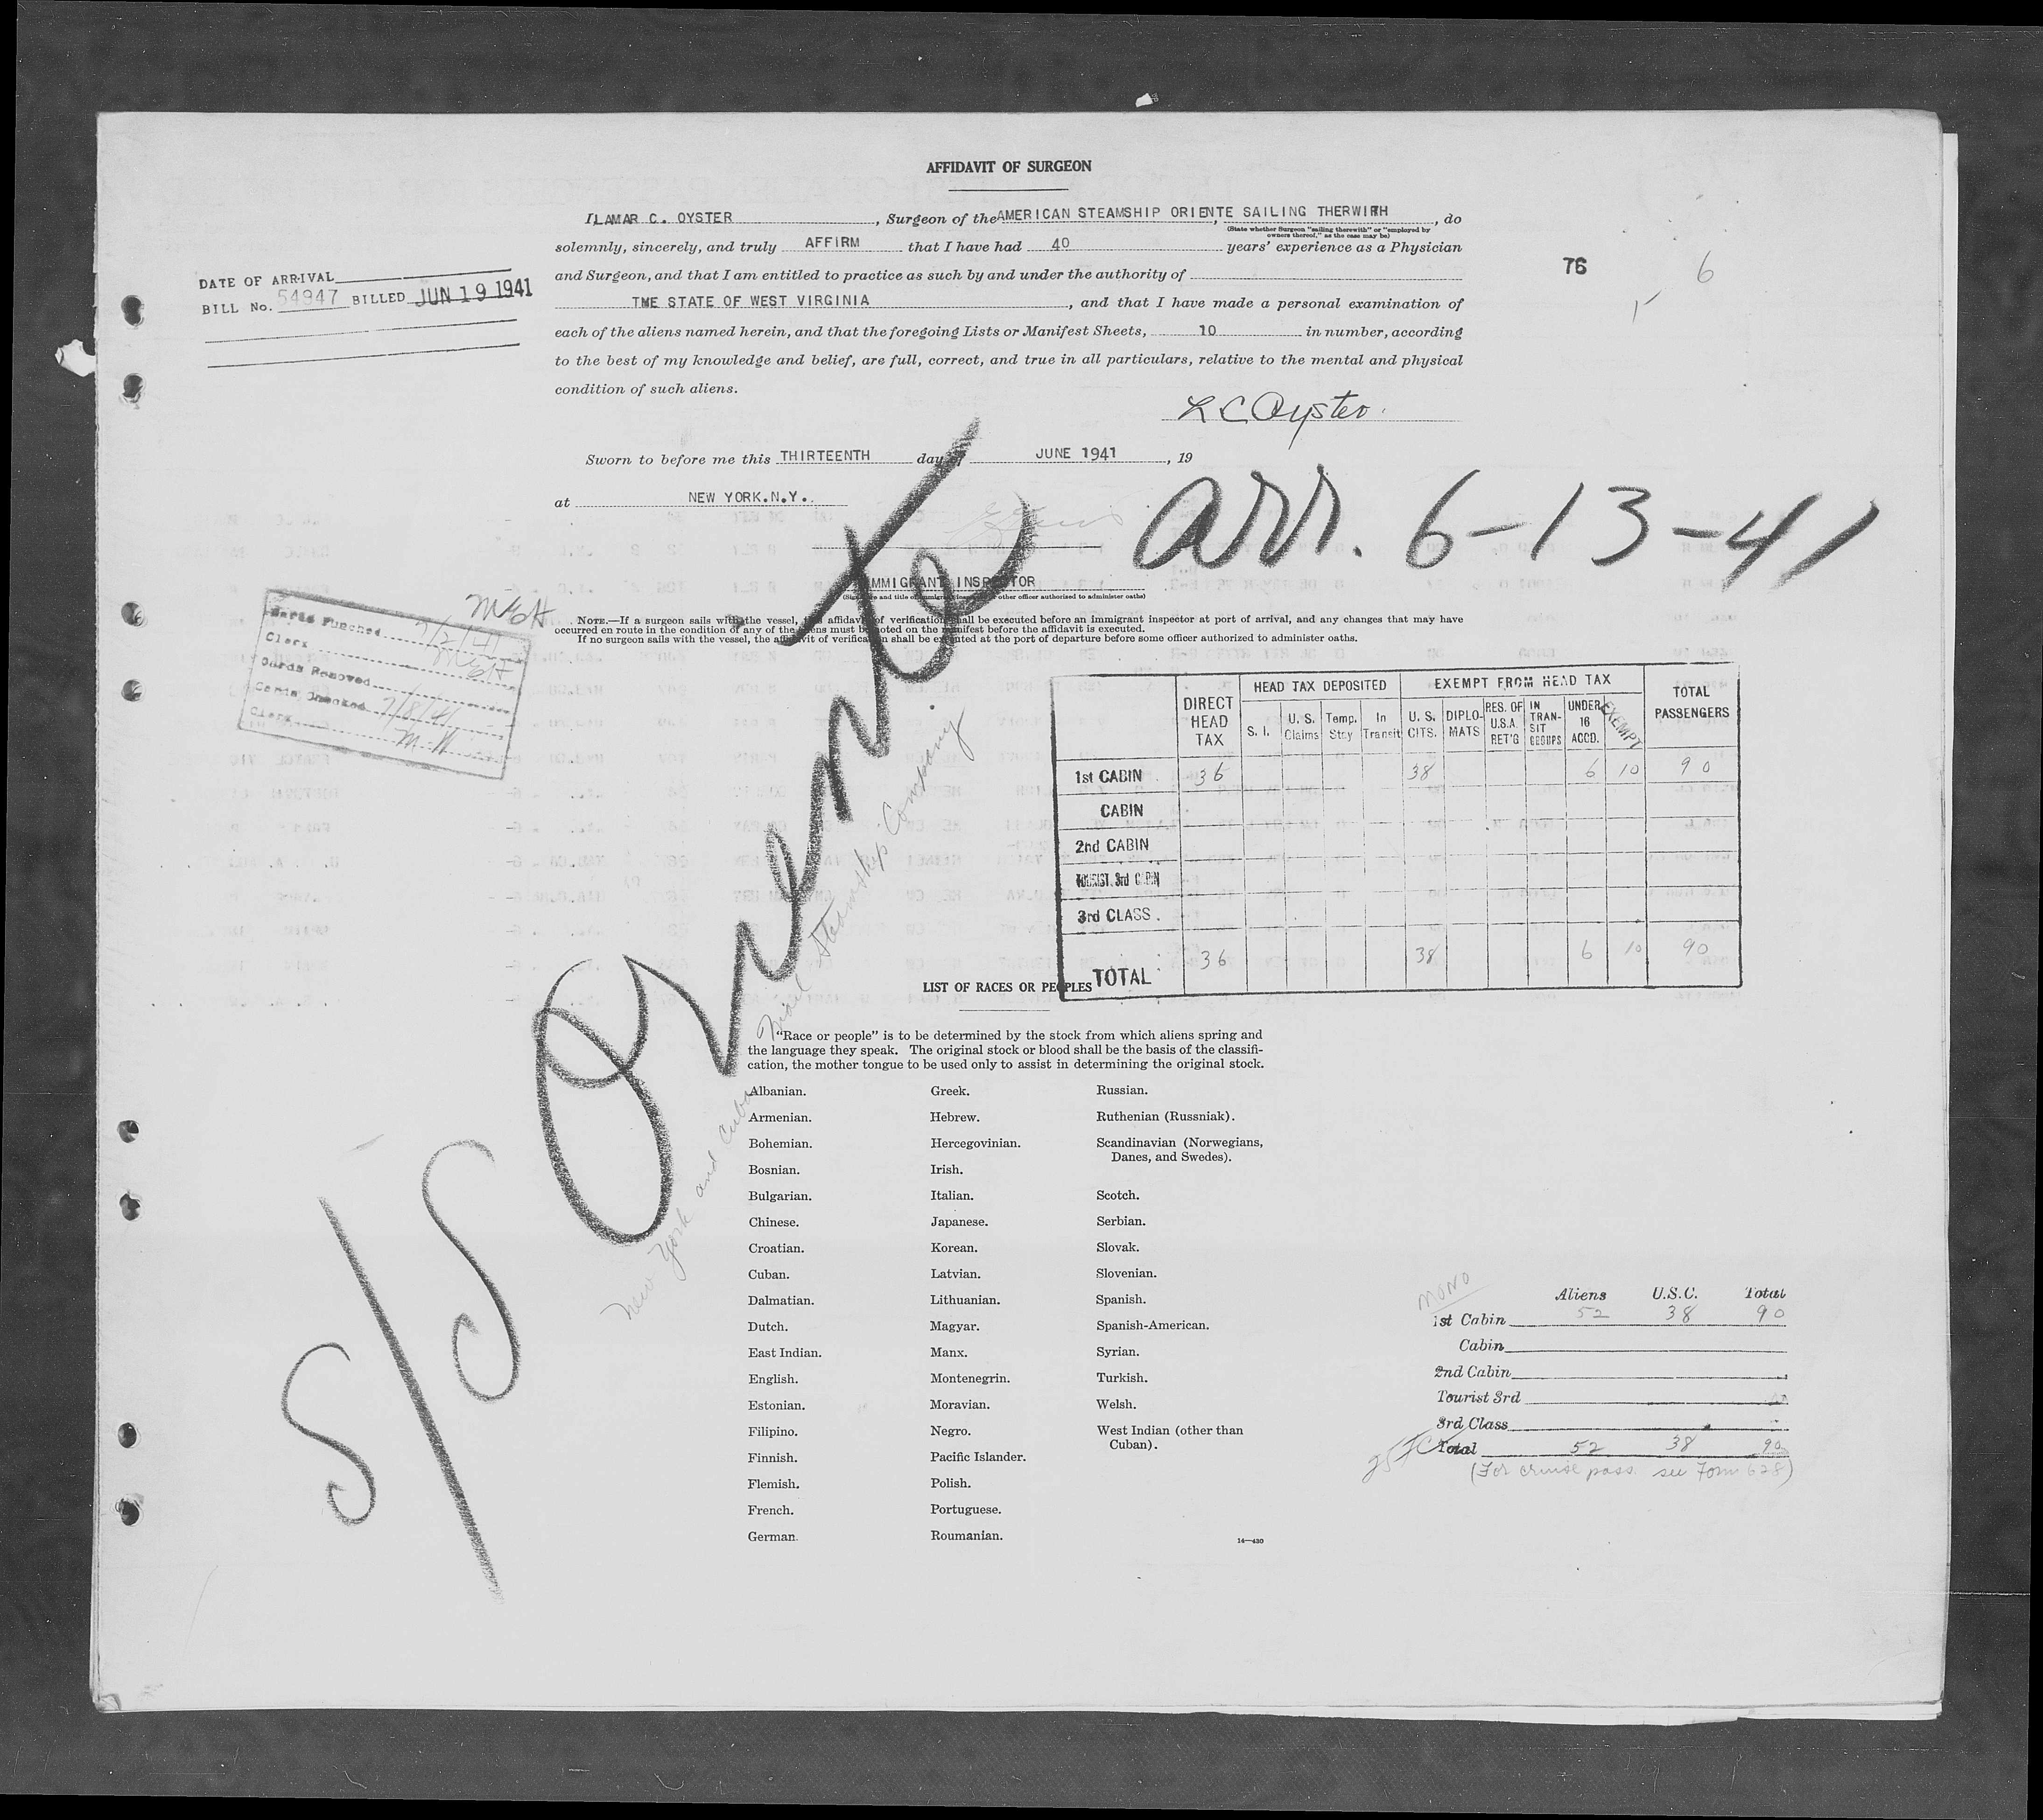 AFFIDAVIT OF SURGEON
I LAMAR C. OYSTER, Surgeon of the AMERICAN STEAMSHIP ORIENTE, SAILING THERWITH, do
(State whether Surgeon "sailing therewith" or "employed by
owners thereof," as the case may be)
solemnly, sincerely, and truly AFFIRM that I have had 40 years' experience as a Physician
and Surgeon, and that I am entitled to practice as such by and under the authority of
TME STATE OF WEST VIRGINIA, and that I have made a personal examination of
each of the aliens named herein, and that the foregoing Lists or Manifest Sheets, 10 in number, according
to the best of my knowledge and belief, are full, correct, and true in all particulars, relative to the mental and physical
condition of such aliens.
L C Oyster.
76
6
DATE OF ARRIVAL
BILL No. 54947 BILLED JUN 19 1941
Sworn to before me this THIRTEENTH day of JUNE 1941, 19
at NEW YORK.N.Y..
arr. 6-13-41
IMMIGRANT INSPECTOR
(Signature and title of immigrant inspector or other officer authorized to administer oaths)
NOTE.—If a surgeon sails with the vessel, this affidavit of verification shall be executed before an immigrant inspector at port of arrival, and any changes that may have
occurred en route in the condition of any of the aliens must be noted on the manifest before the affidavit is executed.
If no surgeon sails with the vessel, the affidavit of verification shall be executed at the port of departure before some officer authorized to administer oaths.
Cards Punched 7/2/41
Clerk
Cards Removed
Cards Checked 7/8/41
Clerk
S/S Oriente
New York and Cuba Mail Steamship Company
DIRECT HEAD TAX HEAD TAX DEPOSITED EXEMPT FROM HEAD TAX TOTAL PASSENGERS
S. I. U. S. Claims Temp. Stay In Transit U. S. CITS. DIPLO-MATS RES. OF U.S.A. RET'G IN TRAN-SIT GROUPS UNDER 16 ACCD. EXEMPT
1st CABIN 36 38 6 10 90
CABIN
2nd CABIN
TOURIST 3rd CABIN
3rd CLASS.
TOTAL 36 38 6 10 90
LIST OF RACES OR PEOPLES
"Race or people" is to be determined by the stock from which aliens spring and
the language they speak. The original stock or blood shall be the basis of the classifi-
cation, the mother tongue to be used only to assist in determining the original stock.
Albanian.
Armenian.
Bohemian.
Bosnian.
Bulgarian.
Chinese.
Croatian.
Cuban.
Dalmatian.
Dutch.
East Indian.
English.
Estonian.
Filipino.
Finnish.
Flemish.
French.
German.
Greek.
Hebrew.
Hercegovinian.
Irish.
Italian.
Japanese.
Korean.
Latvian.
Lithuanian.
Magyar.
Manx.
Montenegrin.
Moravian.
Negro.
Pacific Islander.
Polish.
Portuguese.
Roumanian.
Russian.
Ruthenian (Russniak).
Scandinavian (Norwegians,
Danes, and Swedes).
Scotch.
Serbian.
Slovak.
Slovenian.
Spanish.
Spanish-American.
Syrian.
Turkish.
Welsh.
West Indian (other than
Cuban).
14—430
MONO
Aliens U.S.C. Total
1st Cabin 52 38 90
Cabin
2nd Cabin
Tourist 3rd
3rd Class
Total 52 38 90
(For cruise pass. see Form 628)